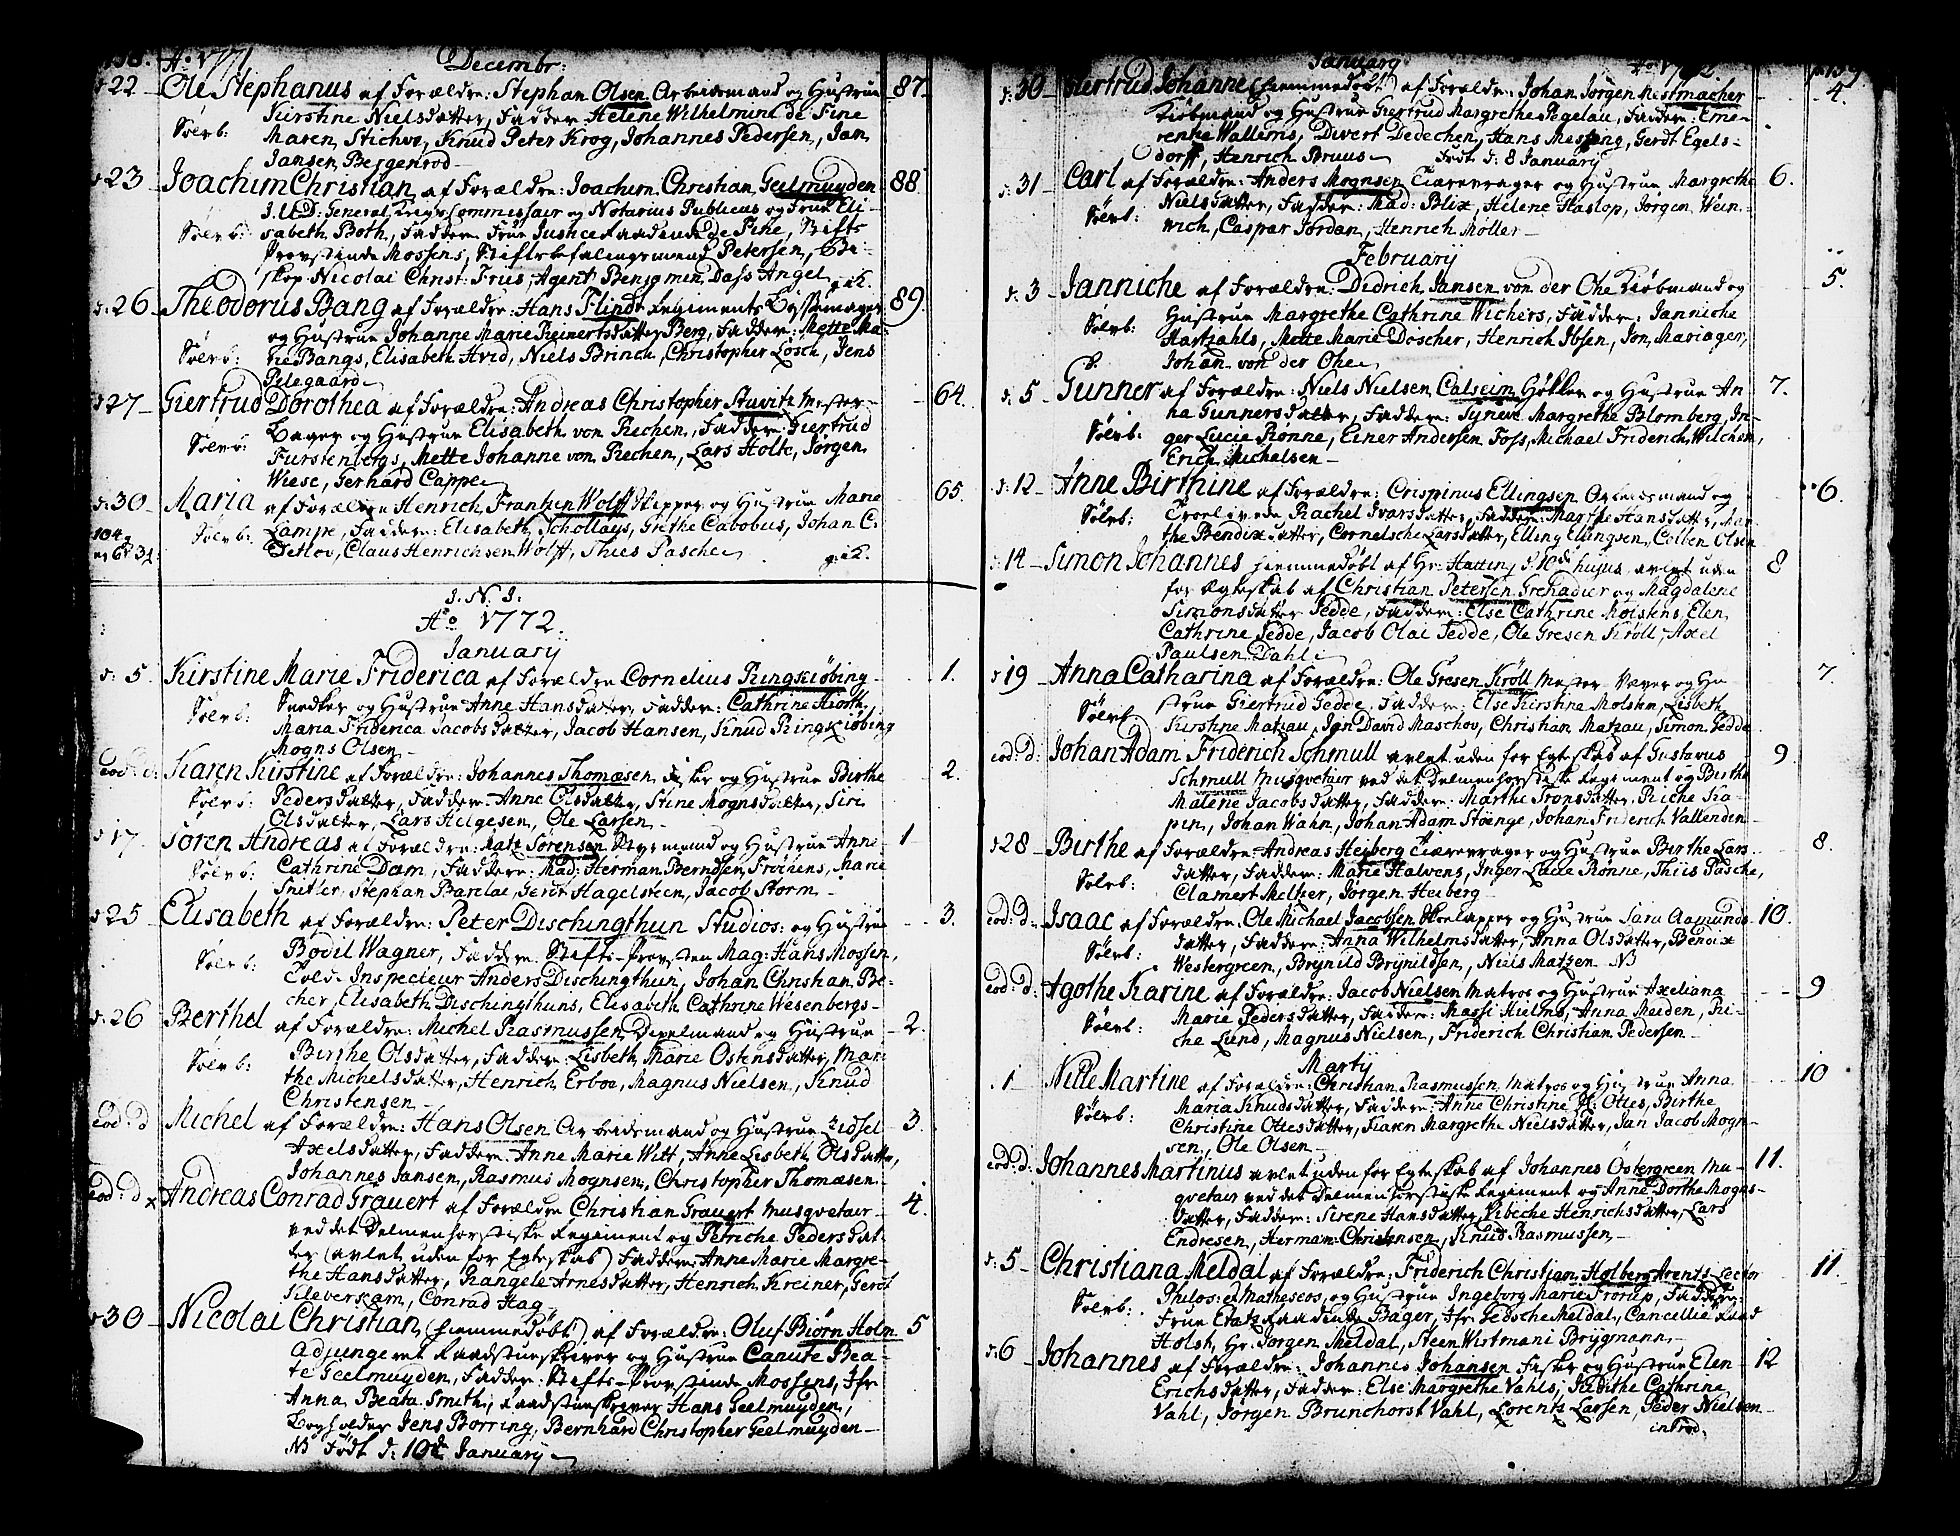 Ao 1771 Decembr:
d: 22 Ole Stephanus af Forældre: Stephan Olsen Arbeidsmand og Hustrue 87.
Kirstine Nielsdatter, Faddere Helene Wilhelmine de Fine
Sølvb: Maren Stichvo, Knud Peter Krog, Johannes Pedersen, Jan
Jansen Beggenrod
d: 23 Joachim Christian af Forældre: Joachim Christian Geelmuyden 88
J.U.D: General Krigs Commissair og Notarius Publicus og Frue Eli-
Sølvb: sabeth Both, Faddere Frue Justice Raadinde de Fine, Stifts
Provstinde Mossens, Stiftsbefalingsmand Petersen, Bi-
skop Nicolai Christ: Friis, Agent Benjamin Dass Angel
d: 26 Theodorus Bang af Forældre: Hans Flindt Regiments Bøssemager 89
og Hustrue Johanne Marie Reinertsdatter Berg, Faddere: Mette Ma-
Sølvb: rie Bangs, Elisabeth Hvid, Niels Brinch, Christopher Lösch, Jens
Pilegaard
d: 27 Giertrud Dorothea af Forældre: Andreas Christopher Stuvitz Mester- 64.
Bager og Hustrue Elisabeth von Rechen, Faddere: Giertrud
Sølvb: Furstenbergs, Mette Johanne von Rechen, Lars Holte, Jørgen
Wiese, Gerhard Cappe
d: 30 Maria af Forældre Henrich Frantzen Wolff Skipper og Hustrue Marie 65.
Sølvb: Lampe, Faddere: Elisabeth Schollays, Grethe Cabobus, Johan C:
Detlov, Claus Henrichsen Wolff, Thies Pasche
J. N. J.
Ao 1772.
January
d: 5. Kirstine Marie Friderica af Forældre Cornelius Ringkiøbing 1.
Snedker og Hustrue Anne Hansdatter, Faddere: Cathrine Hiorth,
Sølvb: Maria Friderica Jacobsdatter, Jacob Hansen, Knud Ringkiøbing
Mogns Olsen
eod: d: Karen Kirstine af Forældre: Johannes Thomæsen og Hustrue Birthe 2.
Sølvb: Pedersdatter, Faddere: Anne Olsdatter, Stine Mognsdatter, Siri
Olsdatter, Lars Helgesen, Ole Larsen
d: 17. Søren Andreas af Forældre: Matz Sørensen Styrmand og Hustrue Anne 1
Sølvb: Cathrine Dam, Faddere: Mad: Herman Berndsen Frøchens, Marie
Snitler, Stephan Barclai, Gerdt Hagelsteen, Jacob Storm
d: 25 Elisabeth af Forældre: Peter Dischingthun Studios: og Hustrue 3.
Sølvb: Bodil Wagner, Faddere Stifts-Provsten Mag: Hans Mossen,
Told-Inspecteur Anders Dischingthun, Johan Christian Be-
cher, Elisabeth Dischingthuns, Elisabeth Cathrine Wesenbergs
d: 26 Berthel af Forældre: Michel Rasmussen og Hustrue 2.
Sølvb: Birthe Olsdatter, Faddere: Lisbeth Marie Ostensdatter, Mar-
the Michelsdatter, Henrich Erboe, Magnus Nielsen, Knud
Christensen
eod: d Michel af Forældre: Hans Olsen Arbeidsmand og Hustrue Zidsel 3.
Axelsdatter, Faddere: Anne Marie Witt, Anne Lisbeth Olsdatter,
Johannes Jansen, Rasmus Mognsen, Christopher Thomæsen
eod: d x Andreas Conrad Grauert af Forældre Christian Grauert Musqvetair 4.
ved det Delmenhorstiske Regiment og Petriche Pedersdat-
ter (avlet uden for Egteskab) Faddere: Anne Marie Margre-
the Hansdatter, Rangele Arnesdatter, Henrich Kreiner, Gerdt
Sileverkam, Conrad Hag
d: 30 Nicolai Christian (hiemmedøbt) af Forældre: Oluf Biørn Holm 5
Adjungeret Raadstueskriver og Hustrue Canute Bea-
te Geelmuyden, Faddere: Stifts-Provstinde Mossens, Jfr
Anna Beata Smith, Raadstueskriver Hans Geelmuyden,
Bogholder Jens Borring, Bernhard Christopher Geelmuyden
NB Født d: 10de January
January Ao 1772 159
d: 30 Giertrud Johanne (hiemmedøbt) af Forældre: Johan Jørgen Mestmacher 4.
Kiøbmand og Hustrue Giertrud Margrethe Pegelau, Faddere: Eme-
rentie Wallems, Divert Dedechen, Hans Mestang, Gerdt Egels-
dorff, Henrich Bruus Født d: 8 January
d: 31 Carl af Forældre: Anders Mognsen Tiærevrager og Hustrue Margrethe 6.
Sølvb: Nielsdatter, Faddere: Mad: Blix, Helene Hastop, Jørgen Wein-
wich, Caspar Jordan, Henrich Møller
February
d: 3 Janniche af Forældre: Didrich Jansen von der Ohe Kiøbmand og 5.
Sølvb: Hustrue Margrethe Cathrine Wichers, Faddere: Janniche
Hartzahls, Mette Marie Döscher, Henrich Ibsen, Jon Mariager,
Johan von der Ohe
d: 5 Gunner af Forældre: Niels Nielsen Calseim Høkker og Hustrue An- 7.
na Gunnersdatter, Faddere: Synive Margrethe Blomberg, In-
Sølvb: ger Lucie Rønne, Einer Andersen Foss, Michael Friderich Wilchen,
Erich Michelsen
d: 12 Anne Birthine af Forældre: Crispinus Ellingsen Arbeidsmand og 6.
Sølvb: Troelovede Rachel Ivarsdatter, Faddere: Marthe Hansdatter, Mar-
the Bendixdatter, Cornelsche Larsdatter, Elling Ellingsen, Colben Olsen
d: 14 Simon Johannes hiemmedøbt af Hr: Hatting d: 10de hujus, avlet uden 8
for Egteskab af Christian Petersen Grenadier og Magdalene
Simonsdatter Gedde, Faddere: Else Cathrine Moistens, Elen
Cathrine Gedde, Jacob Olai Gedde, Ole Gresen Krøll, Axel
Paulsen Dahl
d 19 Anna Catharina af Forældre: Ole Gresen Krøll Mester Væver og Hu- 7.
Sølvb strue Giertrud Gedde, Faddere: Else Kirstina Molsten, Lisbeth
Kirstine Matzau, Jan David Maschov, Christian Matzau, Simon Gedde
eod: d: Johan Adam Friderich Schmull avlet uden for Egteskab af Gustavus 9.
Schmull Musqvetair ved det Delmenhorstiske Regiment og Birthe
Malene Jacobsdatter, Faddere: Marthe Tronsdatter, Riche Ka-
pin, Johan Wahn, Johan Adam Stönge, Johan Friderich Vallendin
d 28 Birthe af Forældre: Andreas Heiberg Tiærevrager og Hustrue Birthe Lars- 8.
Sølvb: datter, Faddere: Marie Halvens, Inger Lucie Rønne, Thiis Pasche,
Clamert Meltzer, Jørgen Heiberg
eod: d: Isaac af Forældre: Ole Michael Jacobsen og Hustrue Sara Aamunds- 10.
Sølvb: datter, Faddere: Anna Wilhelmsdatter, Anna Olsdatter, Bendix
Westergreen, Brynild Brynildsen, Niels Matzen NB
eod: d: Agothe Karine af Forældre: Jacob Nielsen Matros og Hustrue Axeliana 9
Sølvb: Marie Pedersdatter, Faddere: Massi Hielms, Anna Meiden, Ri-
che Lund, Magnus Nielsen, Friderich Christian Pedersen
Martij
1 Nille Martine af Forældre: Christian Rasmussen Matros og Hustrue Anna 10
Sølvb: Maria Knudsdatter, Faddere: Anne Christine Ottes, Birthe
Christine Ottesdatter, Karen Margrethe Nielsdatter, Jan Jacob Mogn-
sen, Ole Olsen
eod: d: Johannes Martinus avlet uden for Egteskab af Johannes Östergreen Mu- 11.
sqvetair ved det Delmenhorstiske Regiment og Anne Dorthe Mogns-
datter, Faddere: Sirene Hansdatter, Vibeche Henrichsdatter, Lars
Endresen, Herman Christensen, Knud Rasmussen
d: 5 Christiana Meldal af Forældre: Friderich Christian Holberg Arents Lector 11.
Sølvb: Philos: et Matheseos, og Hustrue Ingeborg Marie Frorup, Faddere:
Frue Etatz Raadinde Bager, Jfr Gedsche Meldal, Cancellie Raad
Holst, Hr: Jørgen Meldal, Steen Wirtmani Brygmann
d: 6 Johannes af Forældre: Johannes Johansen Fisker og Hustrue Elen 12
Erichsdatter, Faddere: Else Margrethe Vahls, Judithe Cathrine
Vahl, Jörgen Brunchorst Vahl, Lorentz Larsen, Peder Nielsen
introd: